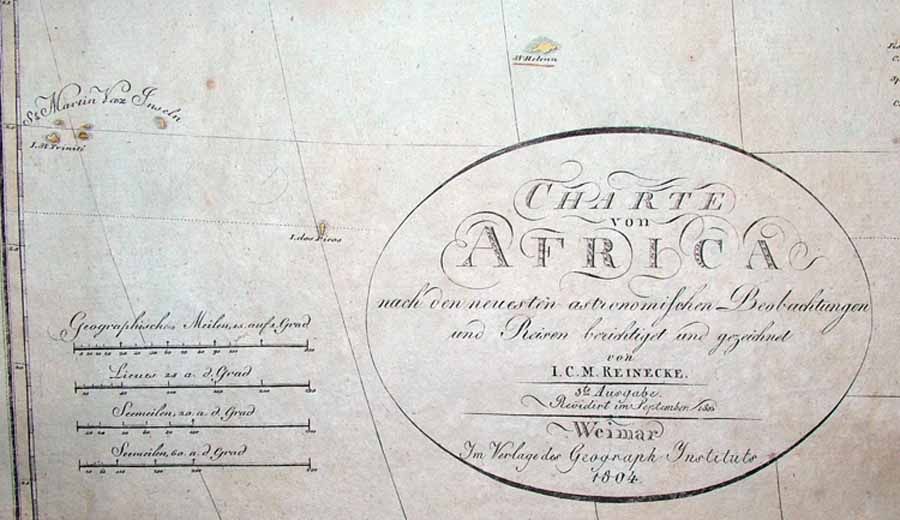 St Martin Vaz Inseln
I. St. Trinité
St Helena
I. dos Picos
CHARTE
von
AFRICA
nach den neuesten astronomischen Beobachtungen
und Reisen berichtiget und gezeichnet
von
I. C. M. REINECKE.
3te Ausgabe.
Revidirt im September
Weimar
Im Verlage des Geograph Instituts
1804.
Geographische Meilen, 15. auf 1. Grad
Lieues 25 a. d. Grad
Seemeilen, 20. a. d. Grad
Seemeilen, 60. a. d. Grad